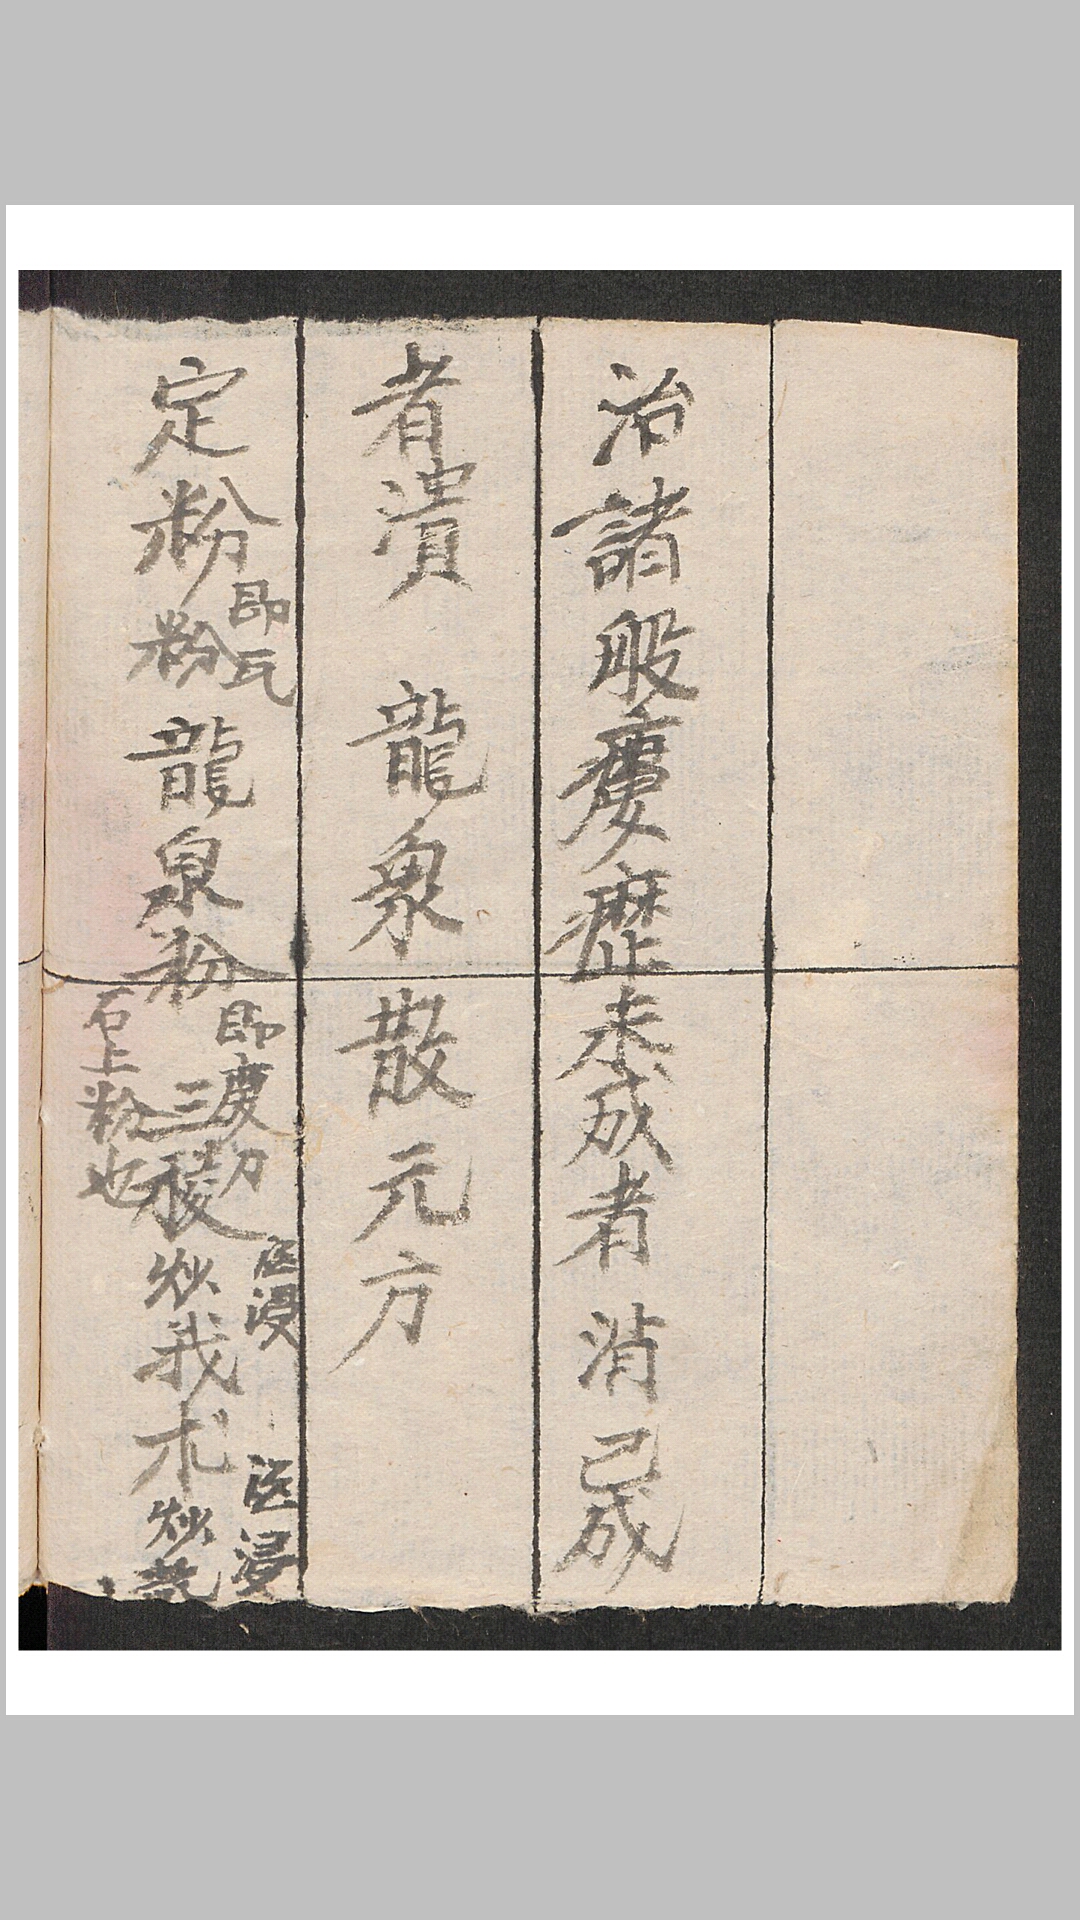 治諸般瘻癧未成者消已成
者潰 龍泉散元方
定粉即瓦粉龍泉粉即磨刀石上粉也三稜医浸炒我术医浸炒乾